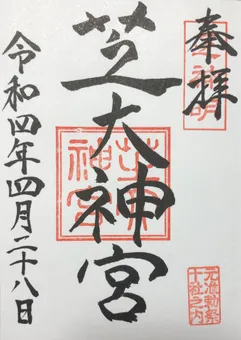 奉拝
芝大神宮
令和四年四月二十八日
元准勅祭
十社之内